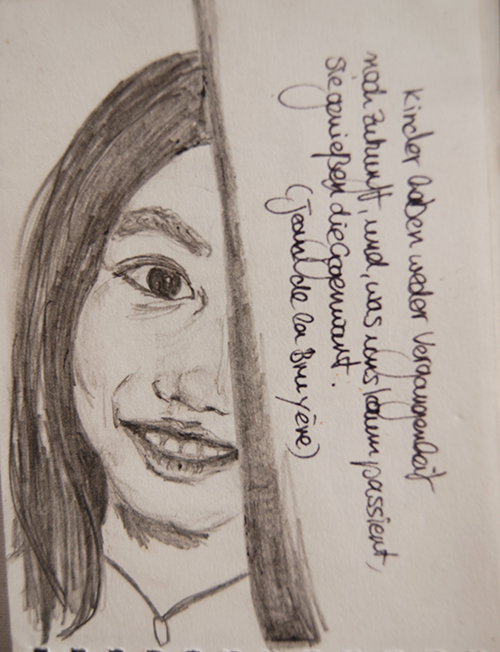 Kinder haben weder Vergangenheit
noch Zukunft, und, was uns kaum passiert,
sie genießen die Gegenwart.
(Jean de la Bruyère)